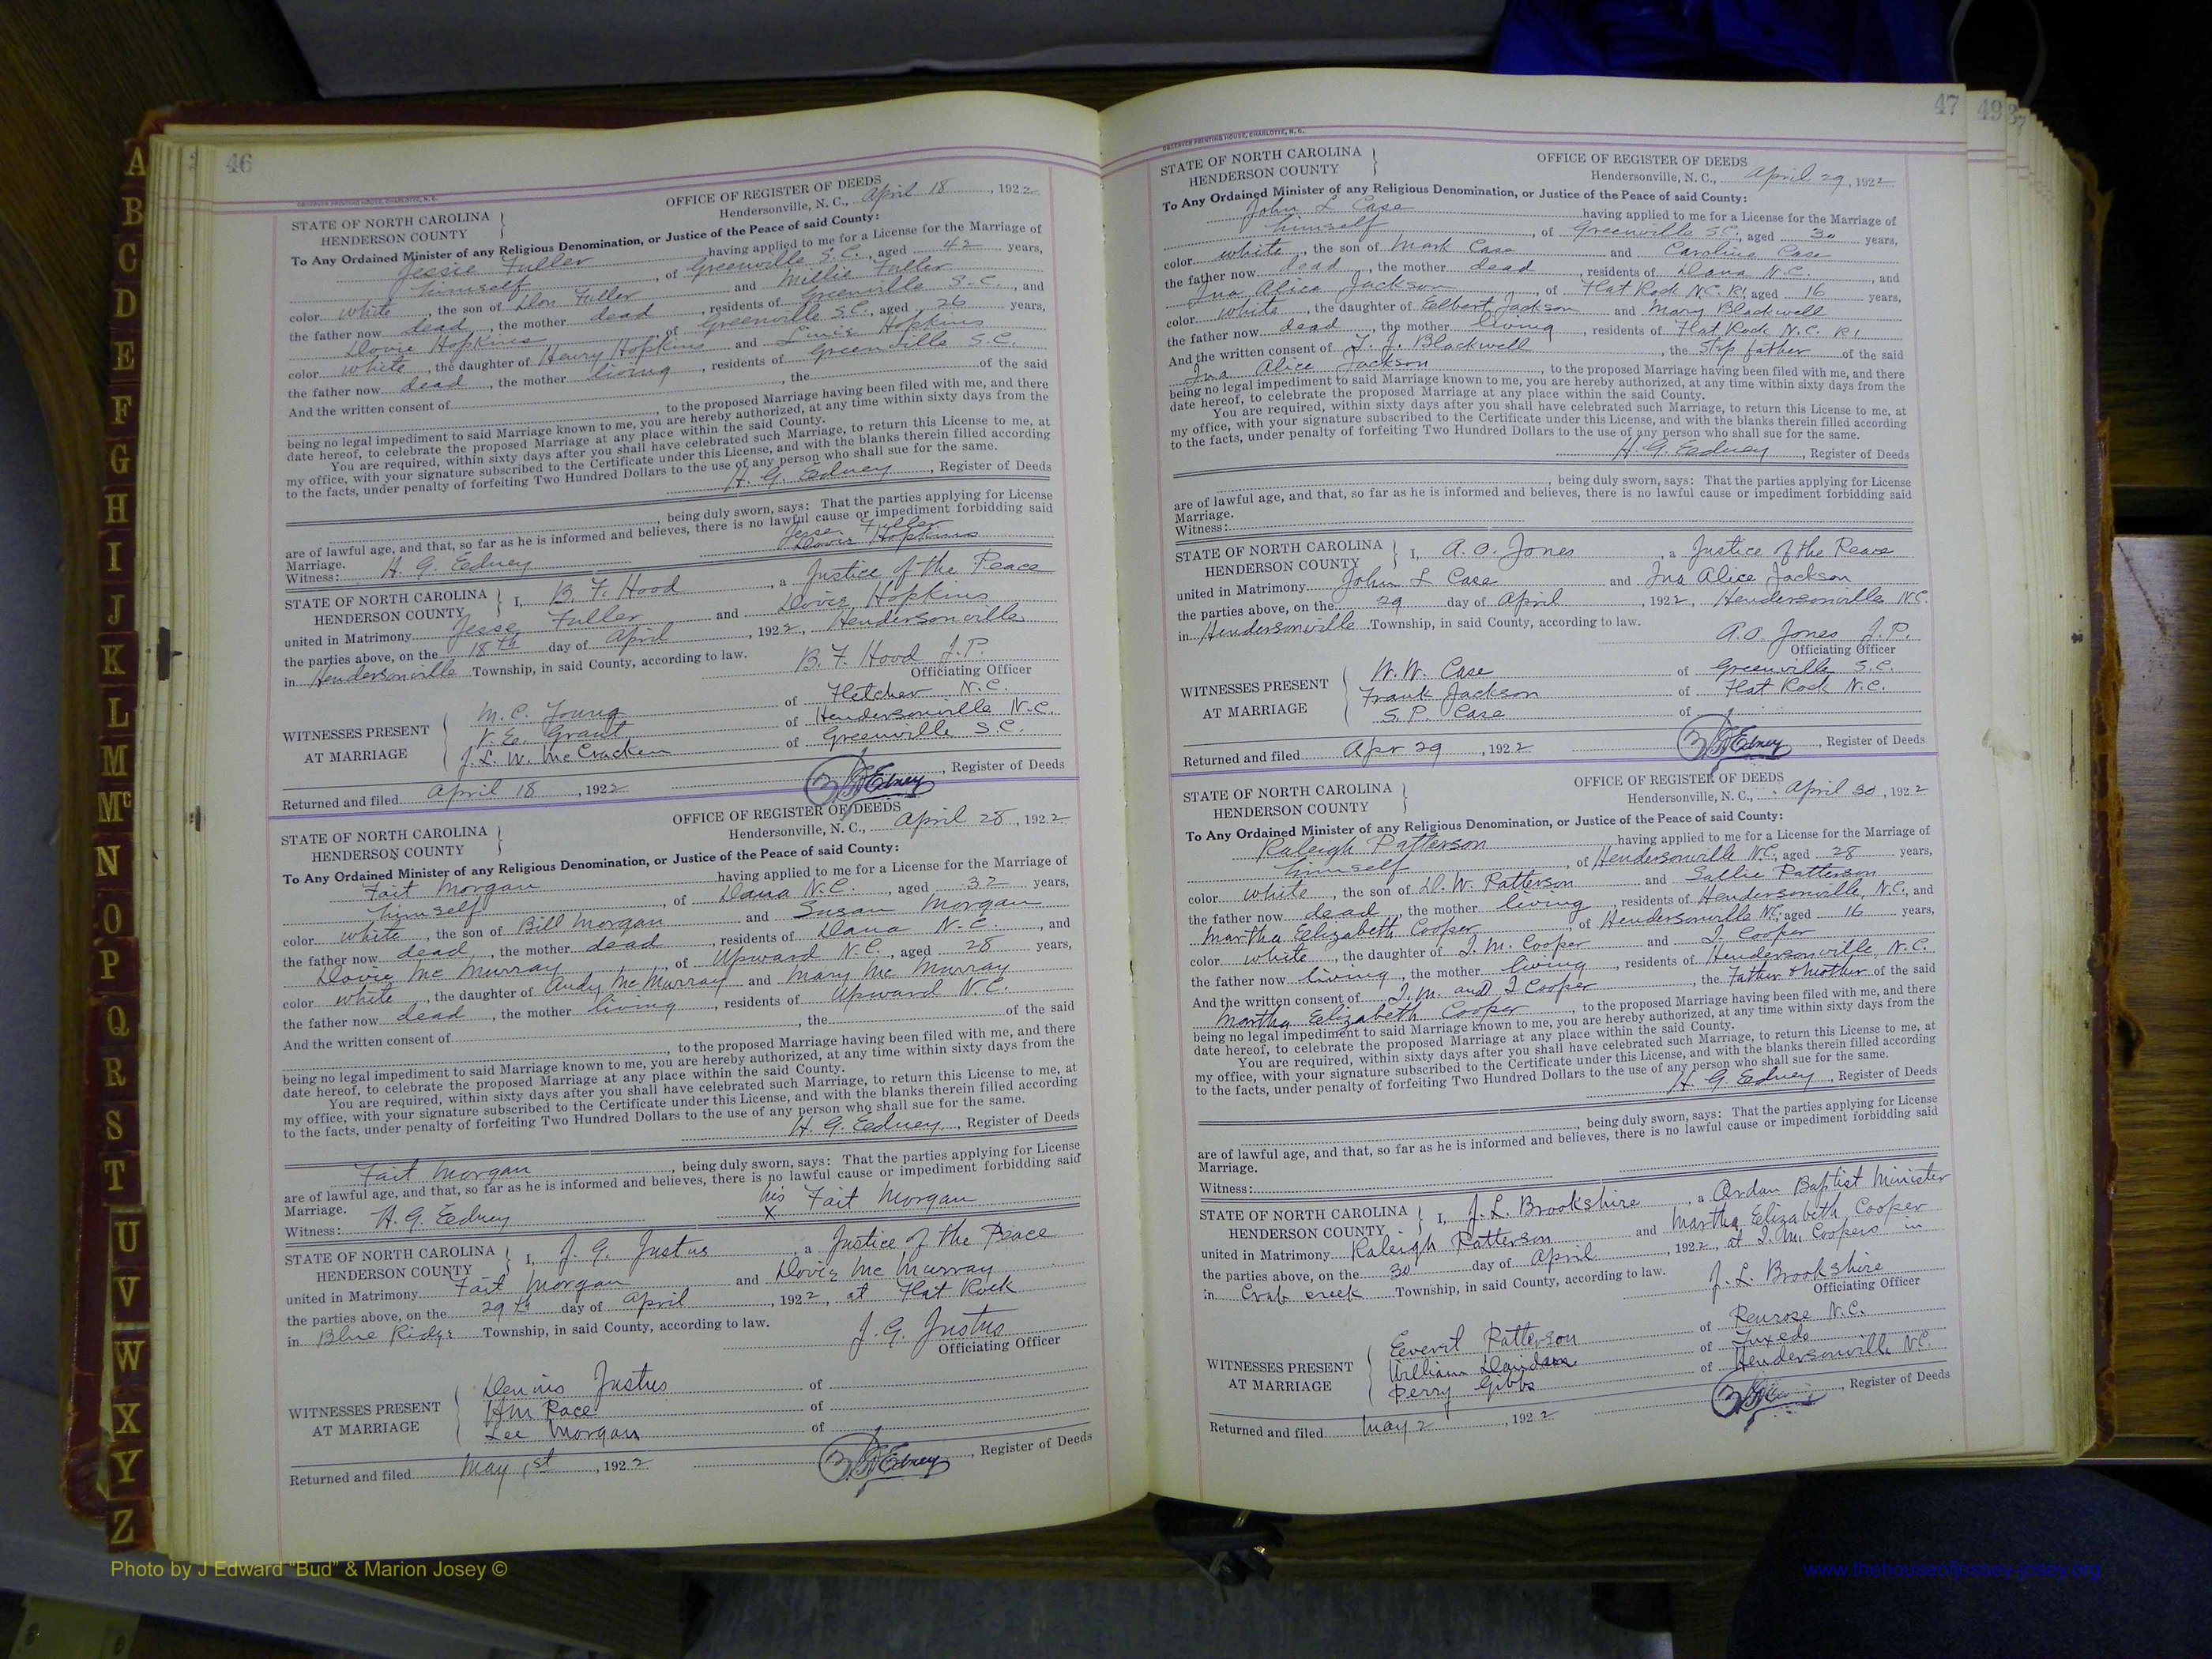 A
B
C
D
E
F
G
H
I
J
K
L
M
Mc
N
O
P
Q
R
S
T
U
V
W
X
Y
Z
46
OBSERVER PRINTING HOUSE, CHARLOTTE, N. C.
STATE OF NORTH CAROLINA
HENDERSON COUNTY
OFFICE OF REGISTER OF DEEDS
Hendersonville, N. C., April 18, 1922
To Any Ordained Minister of any Religious Denomination, or Justice of the Peace of said County:
Jessie Fuller having applied to me for a License for the Marriage of
himself, of Greenville S.C., aged 42 years,
color white, the son of Don Fuller and Millie Fuller
the father now dead, the mother dead, residents of Greenville S.C., and
Dovie Hopkins, of Greenville S.C., aged 26 years,
color white, the daughter of Henry Hopkins and Hopkins
the father now dead, the mother living, residents of Greenville S.C.
And the written consent of, the of the said
, to the proposed Marriage having been filed with me, and there
being no legal impediment to said Marriage known to me, you are hereby authorized, at any time within sixty days from the
date hereof, to celebrate the proposed Marriage at any place within the said County.
You are required, within sixty days after you shall have celebrated such Marriage, to return this License to me, at
my office, with your signature subscribed to the Certificate under this License, and with the blanks therein filled according
to the facts, under penalty of forfeiting Two Hundred Dollars to the use of any person who shall sue for the same.
H. G. Edney, Register of Deeds
, being duly sworn, says: That the parties applying for License
are of lawful age, and that, so far as he is informed and believes, there is no lawful cause or impediment forbidding said
Marriage. Jesse Fuller
Dovie Hopkins
Witness: H. G. Edney
STATE OF NORTH CAROLINA
HENDERSON COUNTY
I, B. F. Hood, a Justice of the Peace
united in Matrimony Jesse Fuller and Dovie Hopkins
the parties above, on the 18th day of April, 1922, Hendersonville
in Hendersonville Township, in said County, according to law.
B. F. Hood J.P.
Officiating Officer
WITNESSES PRESENT
AT MARRIAGE
M. C. Young of Fletcher N.C.
Grant of Hendersonville N.C.
J. L. W. McCracken of Greenville S.C.
Returned and filed April 18, 1922 Edney, Register of Deeds
STATE OF NORTH CAROLINA
HENDERSON COUNTY
OFFICE OF REGISTER OF DEEDS
Hendersonville, N. C., April 28, 1922
To Any Ordained Minister of any Religious Denomination, or Justice of the Peace of said County:
Fait Morgan having applied to me for a License for the Marriage of
himself, of Dana N.C., aged 32 years,
color white, the son of Bill Morgan and Susan Morgan
the father now dead, the mother dead, residents of Dana N.C., and
Dovie Mc Murray, of Upward N.C., aged 28 years,
color white, the daughter of Andy Mc Murray and Mary Mc Murray
the father now dead, the mother living, residents of Upward N.C.
And the written consent of, the of the said
, to the proposed Marriage having been filed with me, and there
being no legal impediment to said Marriage known to me, you are hereby authorized, at any time within sixty days from the
date hereof, to celebrate the proposed Marriage at any place within the said County.
You are required, within sixty days after you shall have celebrated such Marriage, to return this License to me, at
my office, with your signature subscribed to the Certificate under this License, and with the blanks therein filled according
to the facts, under penalty of forfeiting Two Hundred Dollars to the use of any person who shall sue for the same.
H. G. Edney, Register of Deeds
Fait Morgan, being duly sworn, says: That the parties applying for License
are of lawful age, and that, so far as he is informed and believes, there is no lawful cause or impediment forbidding said
Marriage. his
x Fait Morgan
Witness: H. G. Edney
STATE OF NORTH CAROLINA
HENDERSON COUNTY
I, J. G. Justus, a Justice of the Peace
united in Matrimony Fait Morgan and Dovie Mc Murray
the parties above, on the 29th day of April, 1922, at Flat Rock
in Blue Ridge Township, in said County, according to law.
J. G. Justus
Officiating Officer
WITNESSES PRESENT
AT MARRIAGE
Dennis Justus of
Hm Pace of
Lee Morgan of
Returned and filed May 1st, 1922 Edney, Register of Deeds
47
49
37
OBSERVER PRINTING HOUSE, CHARLOTTE, N. C.
STATE OF NORTH CAROLINA
HENDERSON COUNTY
OFFICE OF REGISTER OF DEEDS
Hendersonville, N. C., April 29, 1922
To Any Ordained Minister of any Religious Denomination, or Justice of the Peace of said County:
John L Case having applied to me for a License for the Marriage of
himself, of Greenville S.C., aged 30 years,
color white, the son of Mark Case and Caroline Case
the father now dead, the mother dead, residents of Dana N.C., and
Ina Alice Jackson, of Flat Rock N.C. R1, aged 16 years,
color white, the daughter of Eelbert Jackson and Mary Blackwell
the father now dead, the mother living, residents of Flat Rock N.C. R1
And the written consent of J. J. Blackwell, the Step father of the said
Ina Alice Jackson, to the proposed Marriage having been filed with me, and there
being no legal impediment to said Marriage known to me, you are hereby authorized, at any time within sixty days from the
date hereof, to celebrate the proposed Marriage at any place within the said County.
You are required, within sixty days after you shall have celebrated such Marriage, to return this License to me, at
my office, with your signature subscribed to the Certificate under this License, and with the blanks therein filled according
to the facts, under penalty of forfeiting Two Hundred Dollars to the use of any person who shall sue for the same.
H. G. Edney, Register of Deeds
, being duly sworn, says: That the parties applying for License
are of lawful age, and that, so far as he is informed and believes, there is no lawful cause or impediment forbidding said
Marriage.
Witness:
STATE OF NORTH CAROLINA
HENDERSON COUNTY
I, A. O. Jones, a Justice of the Peace
united in Matrimony John L Case and Ina Alice Jackson
the parties above, on the 29 day of April, 1922, Hendersonville N.C.
in Hendersonville Township, in said County, according to law.
A. O. Jones J.P.
Officiating Officer
WITNESSES PRESENT
AT MARRIAGE
W. W. Case of Greenville S.C.
Frank Jackson of Flat Rock N.C.
S. P. Case of
Returned and filed Apr 29, 1922 Edney, Register of Deeds
STATE OF NORTH CAROLINA
HENDERSON COUNTY
OFFICE OF REGISTER OF DEEDS
Hendersonville, N. C., April 30, 1922
To Any Ordained Minister of any Religious Denomination, or Justice of the Peace of said County:
Raleigh Patterson having applied to me for a License for the Marriage of
himself, of Hendersonville N.C., aged 28 years,
color white, the son of D. W. Patterson and Sallie Patterson
the father now dead, the mother living, residents of Hendersonville, N.C., and
Martha Elizabeth Cooper, of Hendersonville N.C. aged 16 years,
color white, the daughter of J. M. Cooper and J. Cooper
the father now living, the mother living, residents of Hendersonville, N.C.
And the written consent of J. M. and J Cooper, the Father & Mother of the said
Martha Elizabeth Cooper, to the proposed Marriage having been filed with me, and there
being no legal impediment to said Marriage known to me, you are hereby authorized, at any time within sixty days from the
date hereof, to celebrate the proposed Marriage at any place within the said County.
You are required, within sixty days after you shall have celebrated such Marriage, to return this License to me, at
my office, with your signature subscribed to the Certificate under this License, and with the blanks therein filled according
to the facts, under penalty of forfeiting Two Hundred Dollars to the use of any person who shall sue for the same.
H. G. Edney, Register of Deeds
, being duly sworn, says: That the parties applying for License
are of lawful age, and that, so far as he is informed and believes, there is no lawful cause or impediment forbidding said
Marriage.
Witness:
STATE OF NORTH CAROLINA
HENDERSON COUNTY
I, J. L. Brookshire, a Ordan Baptist Minister
united in Matrimony Raleigh Patterson and Martha Elizabeth Cooper
the parties above, on the 30 day of April, 1922, at J. M. Coopers in
in Crab creek Township, in said County, according to law.
J. L. Brookshire
Officiating Officer
WITNESSES PRESENT
AT MARRIAGE
Everit Patterson of Penrose N.C.
William of Tuxedo
Perry Gibbs of Hendersonville N.C.
Returned and filed May 2, 1922, Register of Deeds
Photo by J Edward "Bud" & Marion Josey ©
www.thehouseofjossey-josey.org